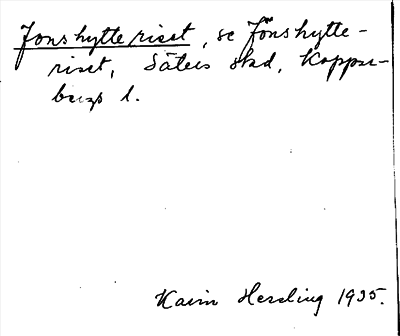 Jonshytteriset, se Jönshytte-
riset, Säters skd, Koppar-
bergs l.
Karin Hessling 1935.